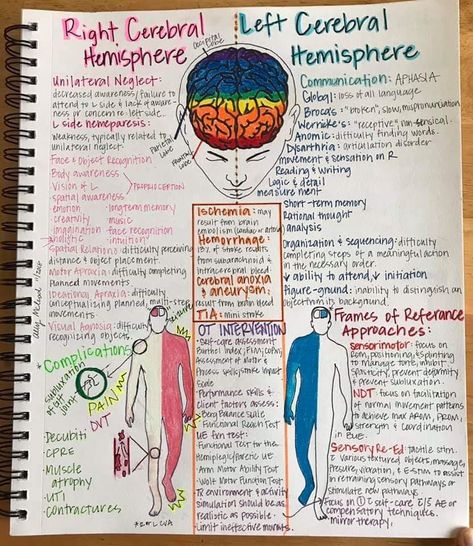 Right Cerebral
Hemisphere
Unilateral Neglect:
decreased awareness/failure to
attend to L side & lack of aware-
ness or concern to left side.
L side hemeparesis:
weakness, typically related to
unilateral neglect
Face & Object Recognition
Body awareness
Vision of L
PROPRIOCEPTION
spatial awareness
emotion
long term memory
creativity
music
imagination
face recognition
holistic
intuition
Spatial Relations: difficulty perceiving
distance & object placement.
Motor Apraxia: difficulty completing
planned movements
Ideational Apraxia: difficulty
conceptualizing planned, multi-step
movements.
Visual Agnosia: difficulty
recognizing objects
Occipital
Lobe
Parietal
Lobe
Frontal
Lobe
Left Cerebral
Hemisphere
Communication: APHASIA
Global: loss of all language
Brocas: "broken", slow, mispronunciation
Wernicke's: "receptive", non-sensical.
Anomic: difficulty finding words
Dysarthria: articulation disorder
movement & sensation on R
Reading & writing
Logic & detail
measurement
Short-term memory
Rational thought
analysis
Organization & sequencing: difficulty
completing steps of a meaningful action
in the necessary order.
↓ ability to attend, ↓ initiation
Figure-ground: inability to distinguish an
object from its background.
Ischemia: may
result from brain
embolism (cardiac or arterial)
Hemorrhage:
13% of stroke results
from subarachnoid &
intracerebral bleed
Cerebral anoxia
& aneurysm:
result from brain bleed
TIA: mini stroke
OT INTERVENTION
· Self-care assessment
Barthel Index, FIM,
Assessment of Motor &
Process skills, stroke Impact
Scale
· Performance skills &
client factors assess:
Berg Balance Scale
Functional Reach Test
UE fxn test:
Functional Test for the
Hemiplegic/Paretic UE
Arm Motor Ability Test
Wolf Motor Function Test
Tx environment & activity
simulation should be as
realistic as possible.
Limit ineffective movmts.
Complications
subluxation
of GH
joint
PAIN
DVT
Seizure
Decubiti
CPRE
Muscle
atrophy
UTI
Contractures
*R MCA CVA
Frames of Referance
Approaches:
Sensorimotor: focus on
ROM, positioning, & splinting
to manage tone, inhibit
spasticity, prevent deformity
& prevent subluxation.
NDT: focus on facilitation
of normal movement patterns
to achieve max AROM, PROM,
strength & coordination
in BUE.
Sensory Re-Ed: tactile stim.
c̄ various textured objects, massage,
pressure, vibration, & E-stim to assist
in retraining sensory pathways or
stimulate new pathways.
Focus on ① c̄ self-care c̄/s̄ AE or
compensatory techniques.
mirror therapy.